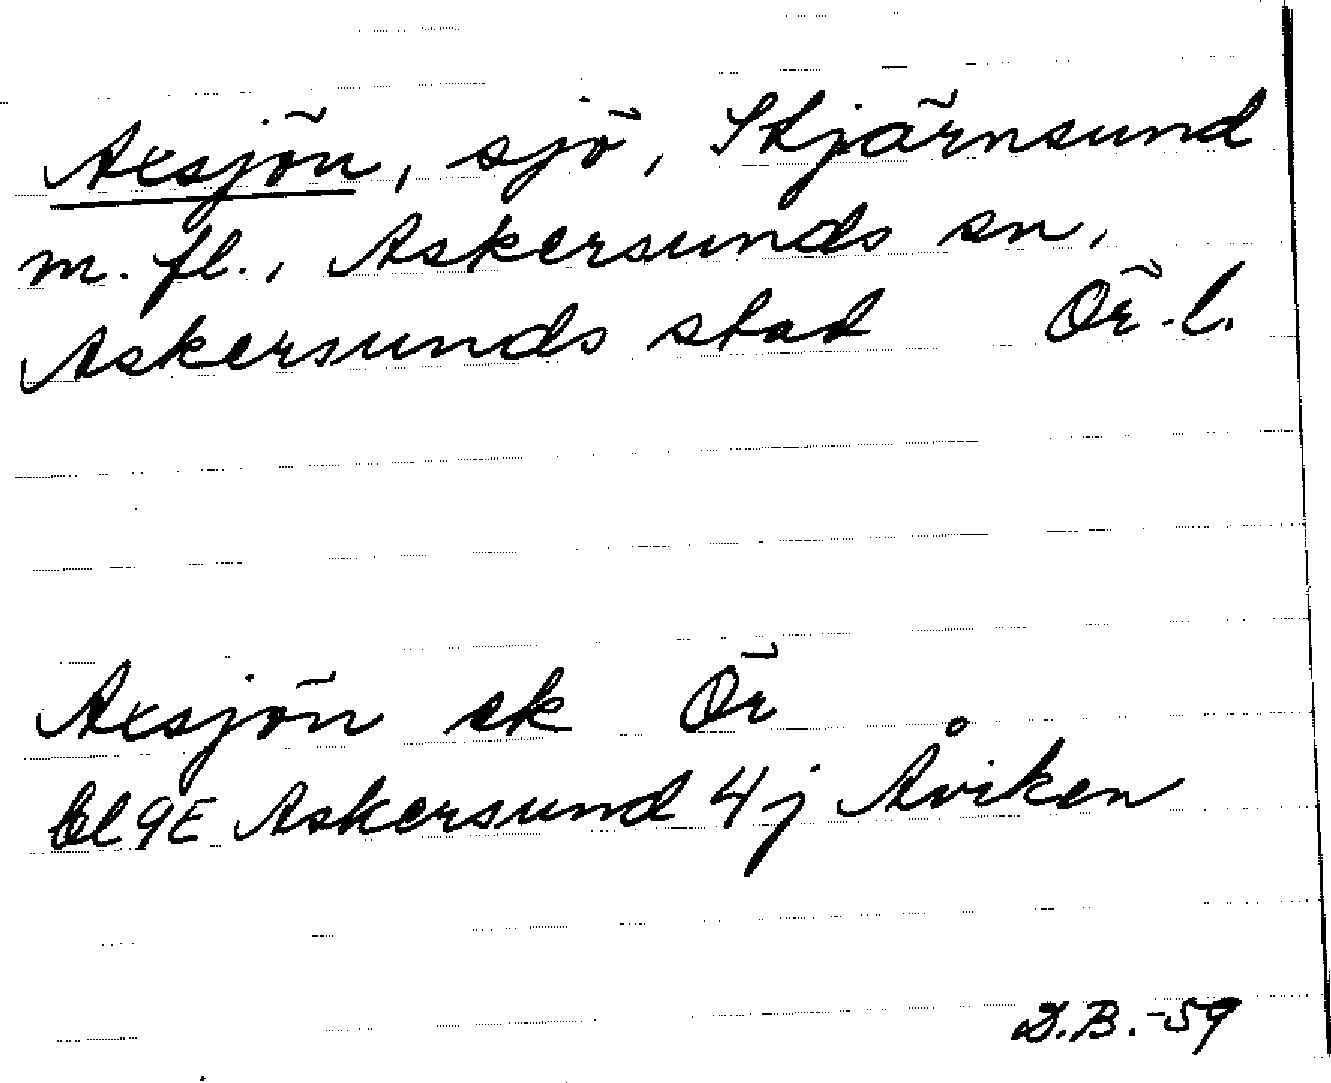 Axsjön, sjö, Stjärnsund
m. fl., Askersunds sn,
Askersunds stad Ör. l.
Axsjön ek Ör
bl 9E Askersund 4j Åviken
D.B.-59